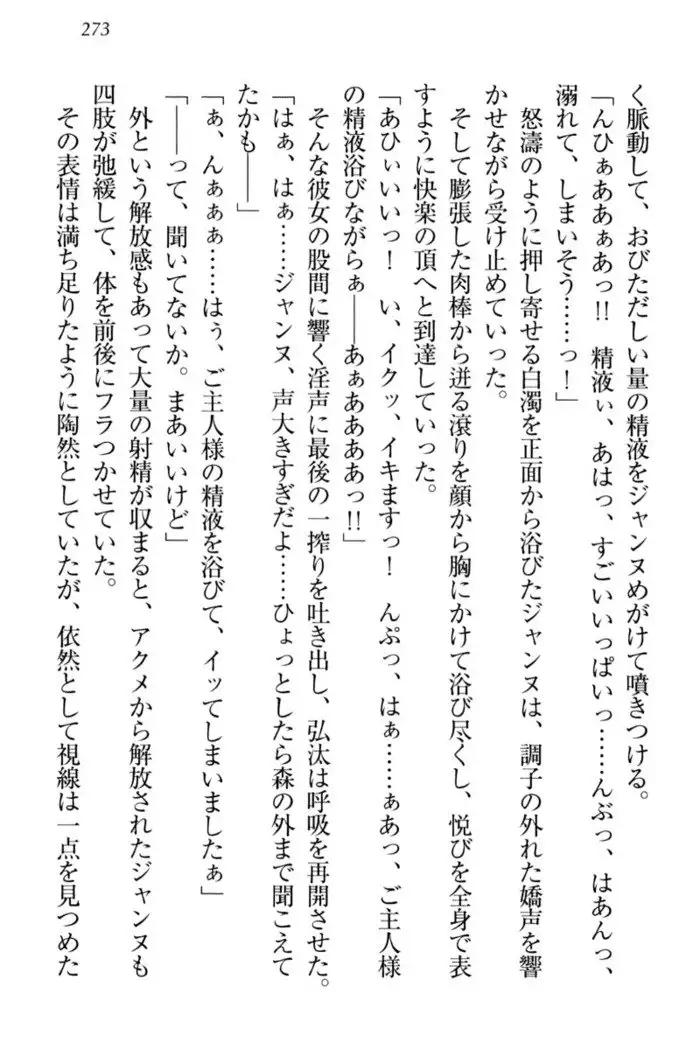 273
く脈動して、おびただしい量の精液をジャンヌめがけて噴きつける。
「んひぁああぁあっ!! 精液ぃ、あはっ、すごいいっぱいっ……んぶっ、はあんっ、
溺れて、しまいそう……っ！」
怒濤のように押し寄せる白濁を正面から浴びたジャンヌは、調子の外れた嬌声を響
かせながら受け止めていった。
そして膨張した肉棒から迸る滾りを顔から胸にかけて浴び尽くし、悦びを全身で表
すように快楽の頂へと到達していった。
「あひぃいいっ！ い、イクッ、イキますっ！ んぷっ、はぁ……ぁあっ、ご主人様
の精液浴びながらぁ――あぁああああっ!!」
そんな彼女の股間に響く淫声に最後の一搾りを吐き出し、弘汰は呼吸を再開させた。
「はぁ、はぁ……ジャンヌ、声大きすぎだよ……ひょっとしたら森の外まで聞こえて
たかも――」
「ぁ、んぁぁぁ……はぅ、ご主人様の精液を浴びて、イッてしまいましたぁ」
「――って、聞いてないか。まあいいけど」
外という解放感もあって大量の射精が収まると、アクメから解放されたジャンヌも
四肢が弛緩して、体を前後にフラつかせていた。
その表情は満ち足りたように陶然としていたが、依然として視線は一点を見つめた